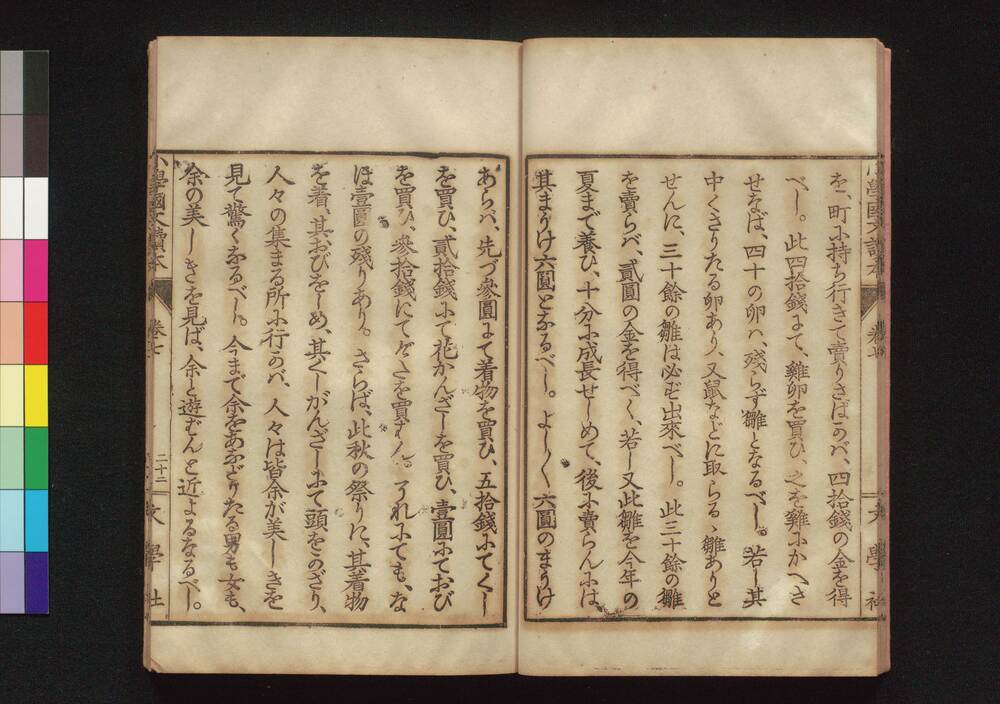 を、町に持ち行きて賣りさばかバ、四拾錢の金を得
べし。此四拾錢にて、雞卵を買ひ、之を雞にかへさ
せなば、四十の卵ハ、殘らず雛となるべし。若し其
中くさりたる卵あり、又鼠などに取らるゝ雛ありと
せんに、三十餘の雛は必ず出來べし。此三十餘の雛
を賣らバ、貳圓の金を得べく、若し又此雛を今年の
夏まで養ひ、十分に成長せしめて、後に賣らんにハ、
其まうけ六圓となるべし。よし〱六圓のまうけ
小學國文讀本
卷七
文學社
あらバ、先づ參圓にて着物を買ひ、五拾錢にてくし
を買ひ、貳拾錢にて花かんざしを買ひ、壹圓にておび
を買ひ、參拾錢にてげたを買はん。それにても、な
ほ壹圓の殘りあり。さらば、此秋の祭りに、其着物
を着、其おびをしめ、其くしかんざしにて頭をかざり、
人々の集まる所に行かバ、人々は皆余が美しきを
見て驚くなるべし。今まで余をあなどりたる男も女も、
余の美しきを見ば、余と遊ばんと近よるなるべし。
小學國文讀本
卷七
二十二
文學社